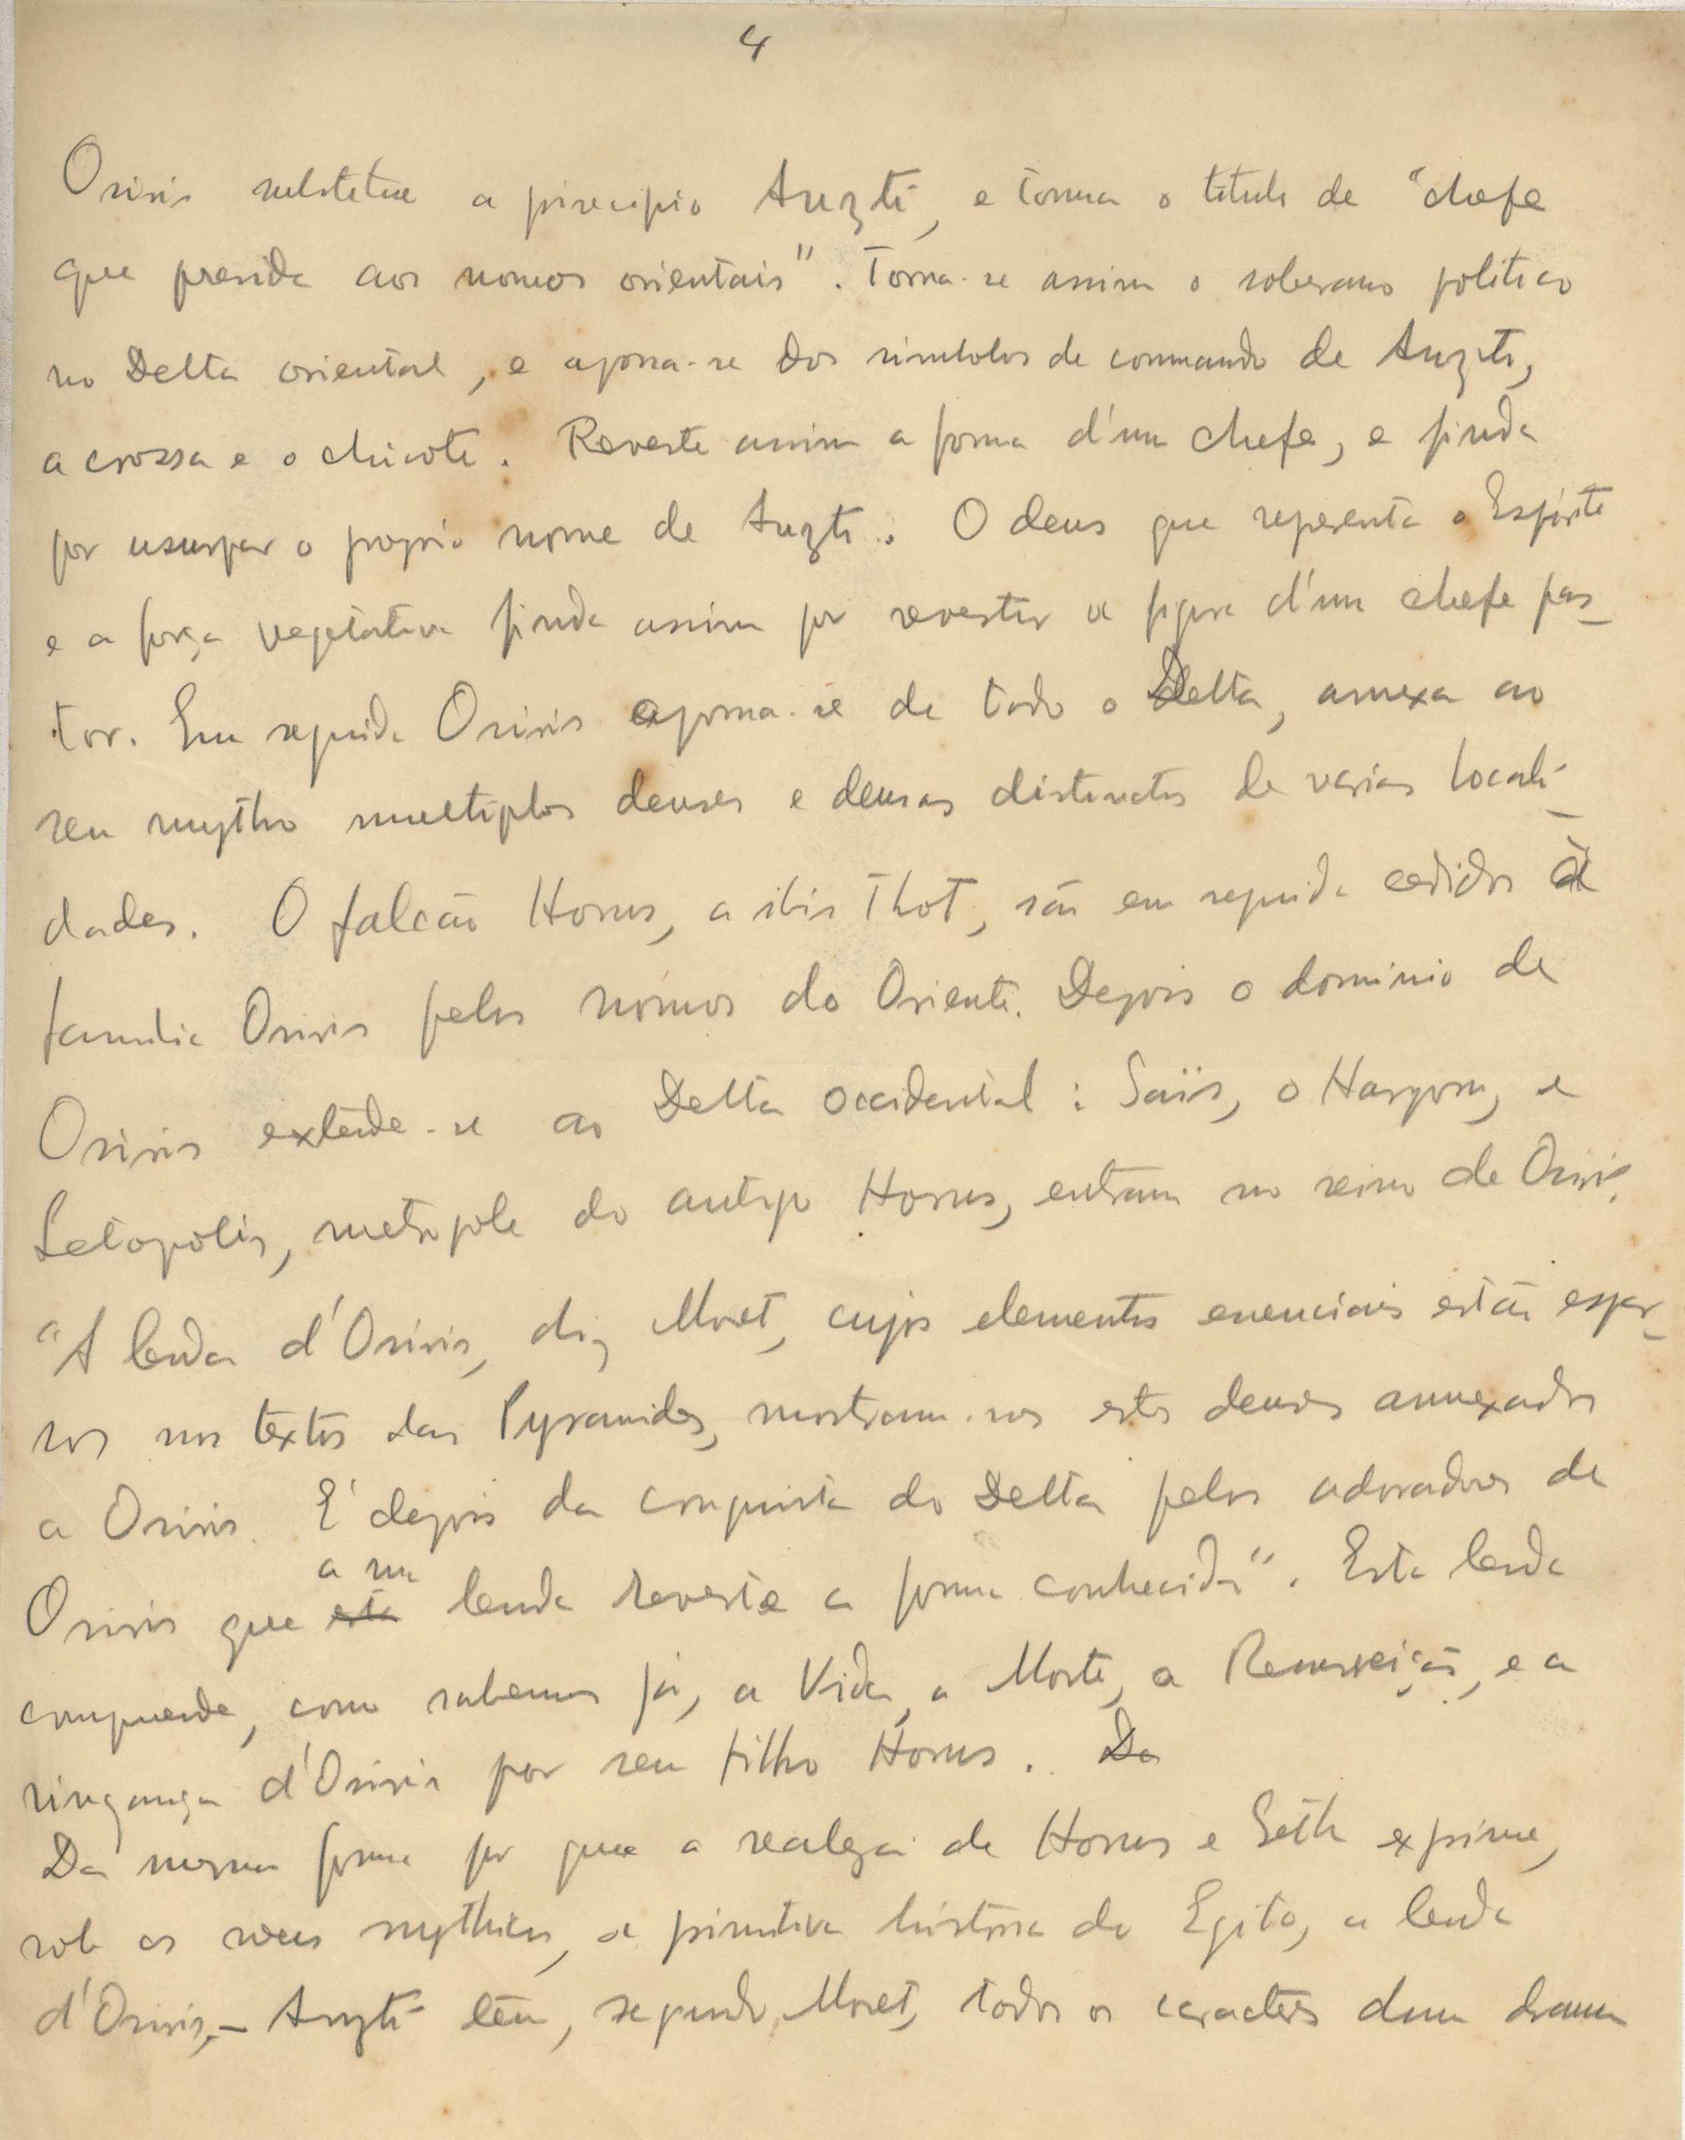 4
Osiris substitue a principio Anzti, e toma o titulo de "chefe
que preside aos nomos orientais". Torna-se assim o soberano politico
no Delta oriental, e apossa-se dos simbolos de commando de Anzti,
a crossa e o chicote. Reveste assim a forma d'um chefe, e finda
por usurpar o proprio nome de Anzti. O deus que representa o Espírito
e a força vegetativa finda assim por revestir a figura d'um chefe pas-
tor. Em seguida Osiris apossa-se de todo o Delta, annexa ao
seu mytho multiplos deuses e deusas distinctos de varias locali-
dades. O falcão Horus, a ibis Thot, são em seguida cedidos à
familia Osiris pelos nómos do Oriente. Depois o dominio de
Osiris extende-se ao Delta occidental: Saïs, o Harpon, e
Letopolis, metropole do antigo Horus, entram no reino de Osiris.
"A lenda d'Osiris, diz Moret, cujos elementos essenciais estão espar-
sos nos textos das Pyramides, mostram-nos estes deuses annexados
a Osiris. E' depois da conquista do Delta pelos adoradores de
a sua
Osiris que esta lenda reveste a forma conhecida". Esta lenda
comprende, como sabemos já, a Vida, a Morte, a Ressurreição, e a
vingança d'Osiris por seu filho Horus. Da
Da mesma forma por que a realeza de Horus e Seth exprime,
sob os veus mythicos, a primitiva história do Egito, a lenda
d'Osiris,- Anzti tem, segundo Moret, todos os caracteres dum drama